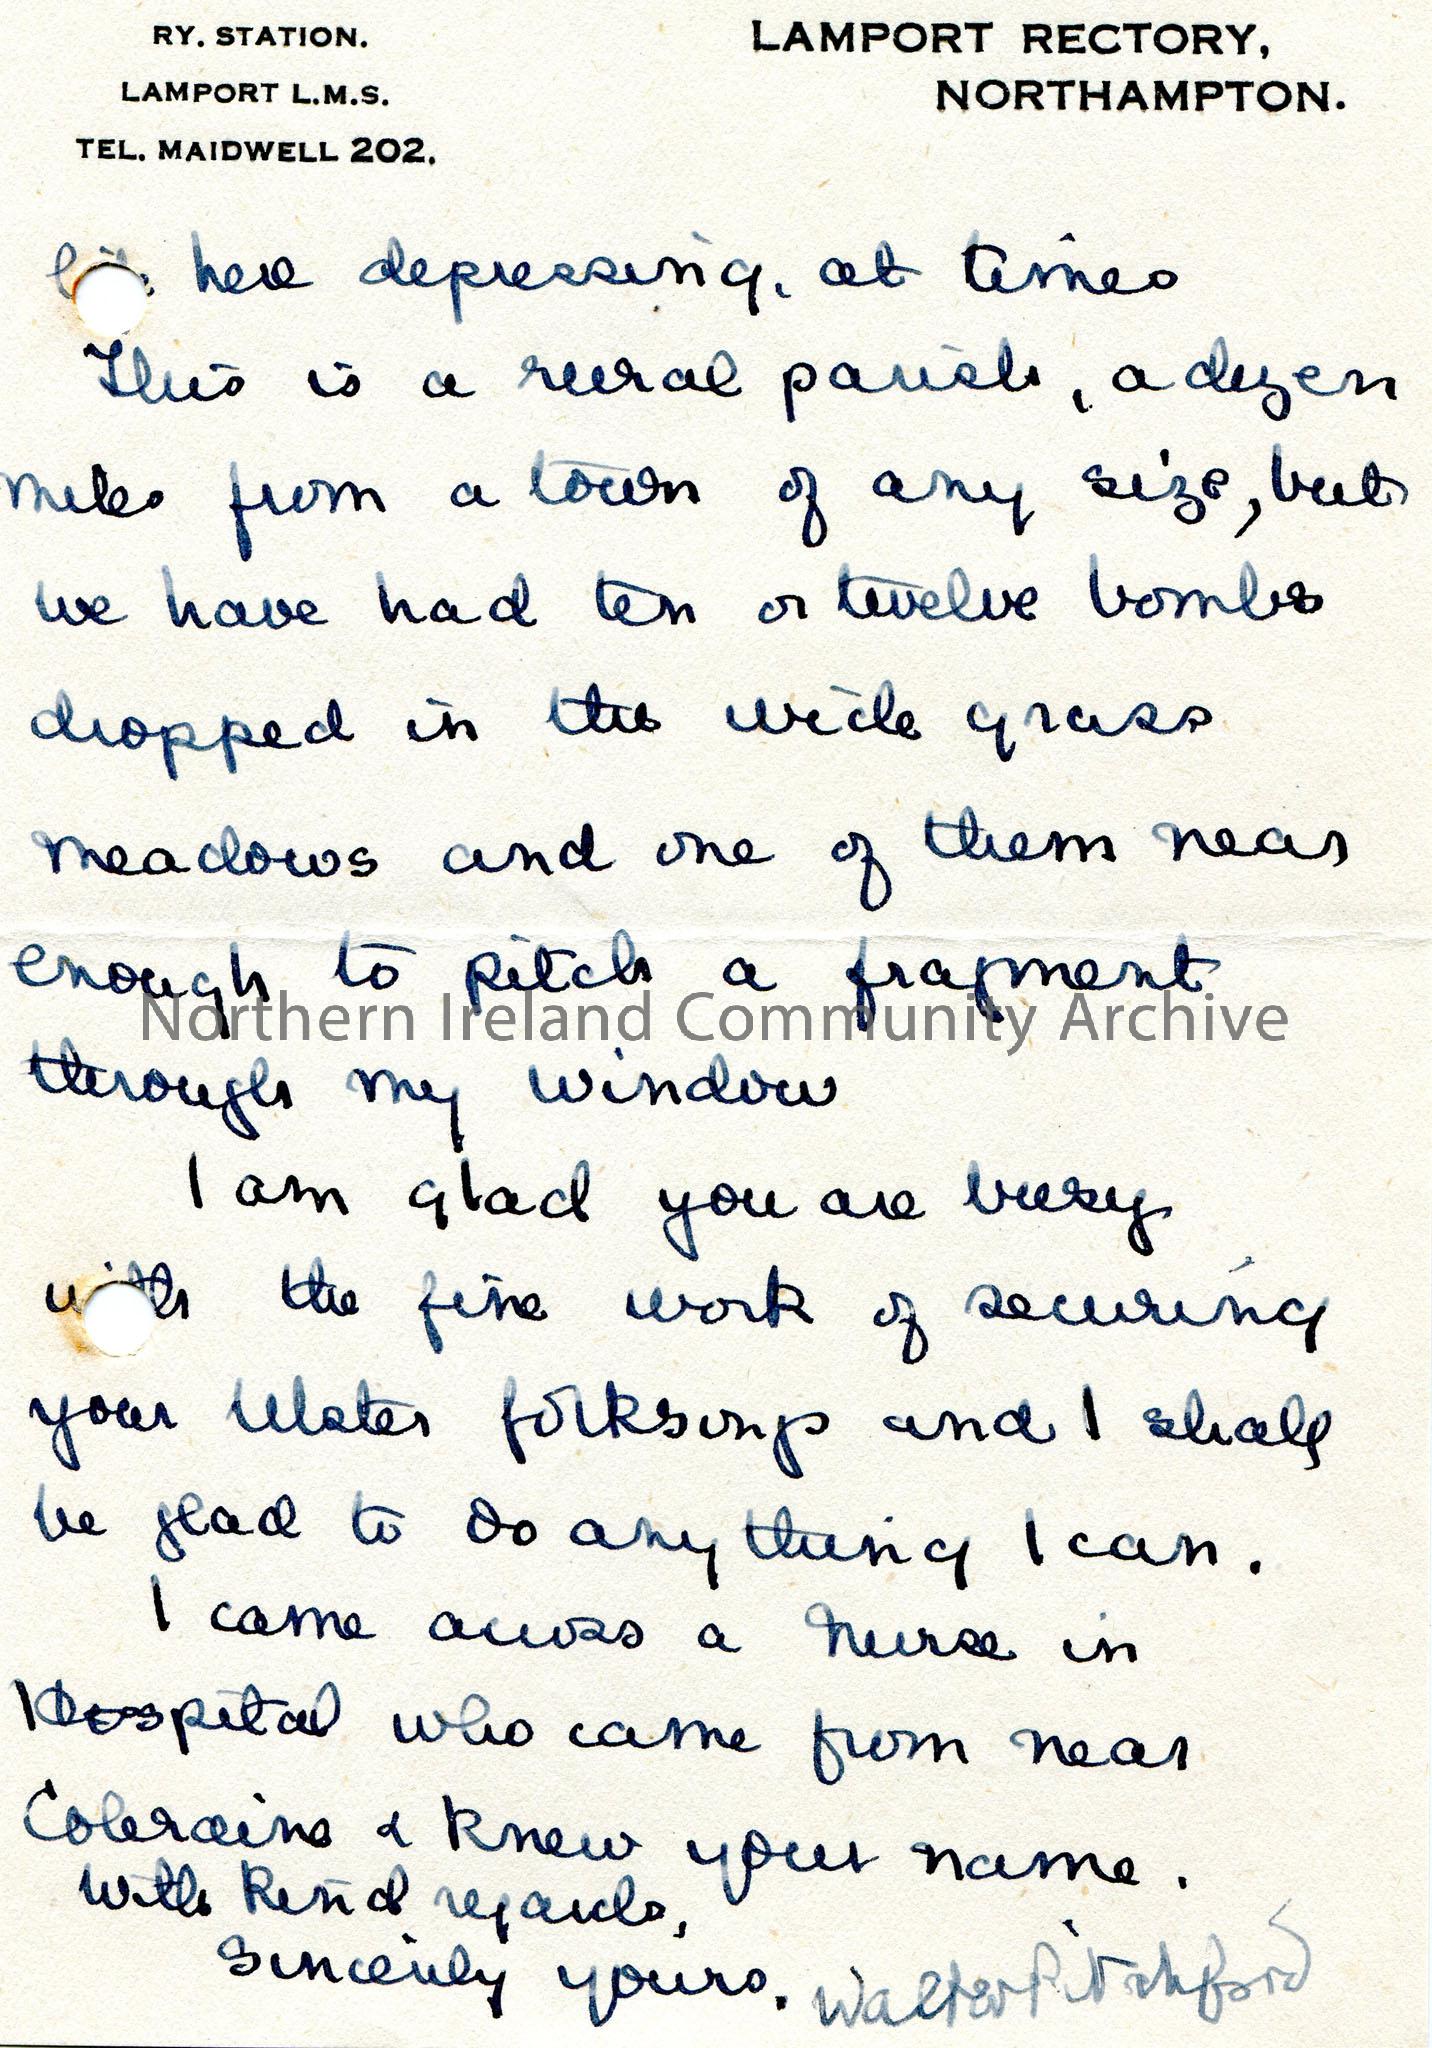 RY. STATION.
LAMPORT L.M.S.
TEL. MAIDWELL 202.
LAMPORT RECTORY,
NORTHAMPTON.
here depressing, at times
This is a rural parish, a dozen
miles from a town of any size, but
we have had ten or twelve bombs
dropped in the wide grass
meadows and one of them near
enough to pitch a fragment
Northern Ireland Community Archive
through my window
I am glad you are busy
with the fine work of securing
your Ulster folksongs and I shall
be glad to do anything I can.
I came across a nurse in
Hospital who came from near
Coleraine & knew your name.
With kind regards,
Sincerely yours,
Walter Pitchford